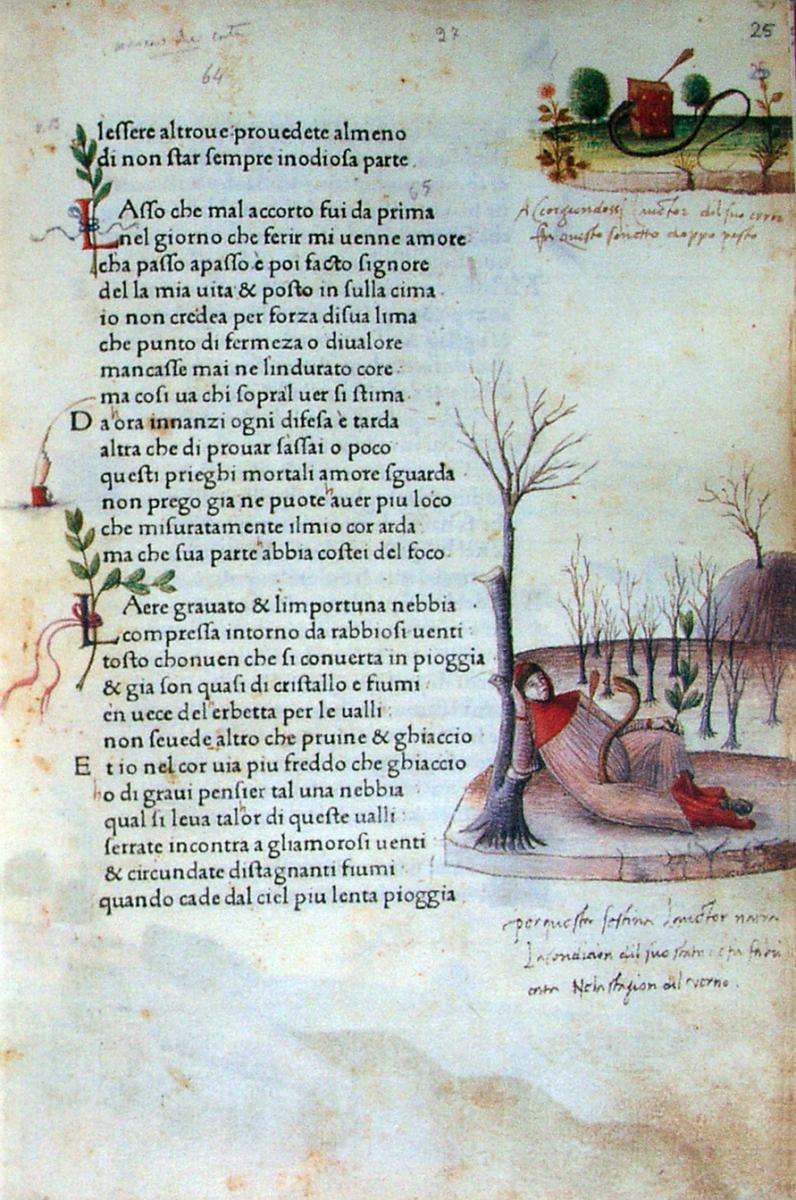 27
25
64
lessere altroue prouedete almeno
di non star sempre inodiosa parte
65
LAsso che mal accorto fui da prima
nel giorno che ferir mi uenne amore
cha passo apasso è poi facto signore
del la mia uita & posto in sulla cima
io non credea per forza disua lima
che punto di fermeza o diualore
mancasse mai ne lindurato core
ma cosi ua chi sopral uer si stima
Da hora innanzi ogni difesa è tarda
altra che di prouar sassai o poco
questi prieghi mortali amore sguarda
non prego gia ne puote hauer piu loco
che misuratamente ilmio cor arda
ma che sua parte abbia costei del foco
LAere grauato & limportuna nebbia
compressa intorno da rabbiosi uenti
tosto chonuen che si conuerta in pioggia
& gia son quasi di cristallo e fiumi
en uece del erbetta per le ualli
non seuede altro che pruine & ghiaccio
Et io nel cor uia piu freddo che ghiaccio
ho di graui pensier tal una nebbia
qual si leua talhor di queste ualli
serrate incontra agliamorosi uenti
& circundate distagnanti fiumi
quando cade dal ciel piu lenta pioggia
Acorgiendossi del suo
questo sonetto doppo
per questa sestina Lauctor narra
del suo stato
Nela stagion del verno.